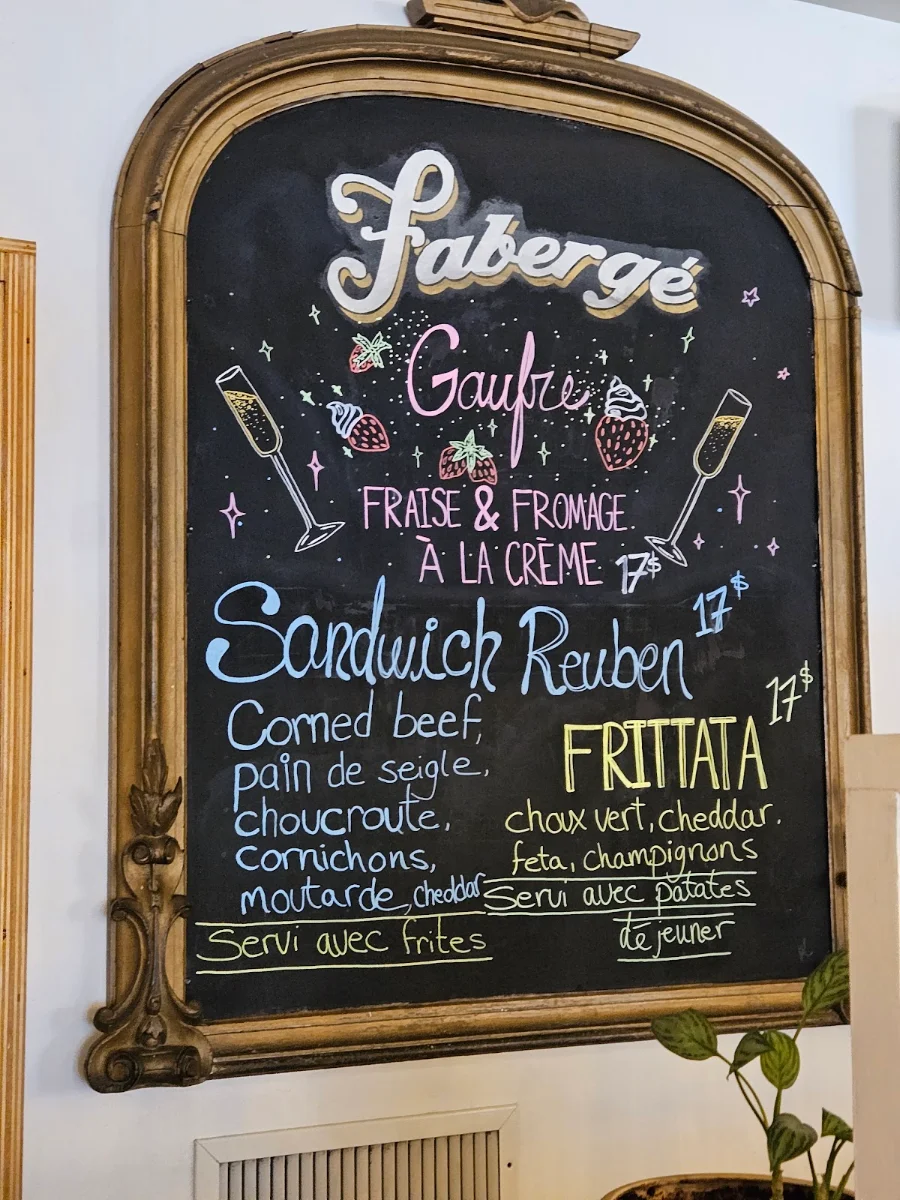 Fabergé
Gaufre
FRAISE & FROMAGE
À LA CRÈME 17$
Sandwich Reuben 17$
Corned beef,
pain de seigle,
choucroute,
cornichons,
moutarde, cheddar
Servi avec frites
FRITTATA 17$
choux vert, cheddar,
feta, champignons
Servi avec patates
déjeuner